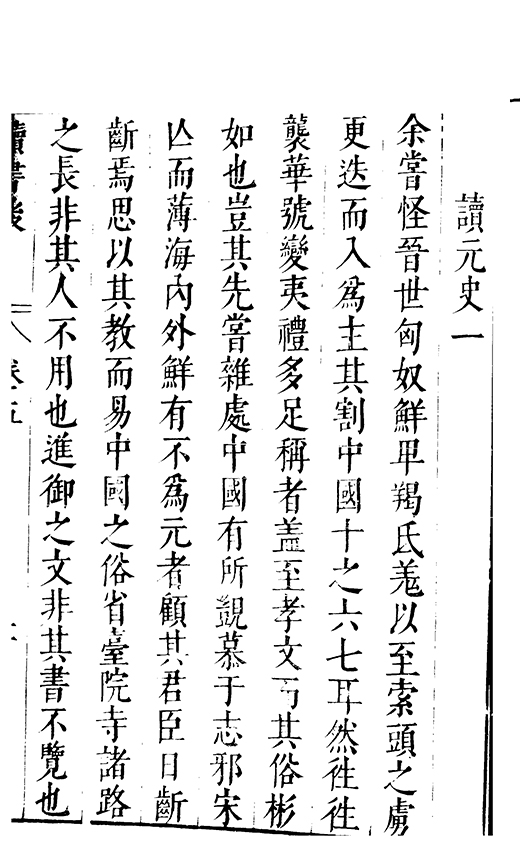 讀元史一
余嘗怪晉世匈奴鮮卑羯氐羗以至索頭之虜
更迭而入為主其割中國十之六七耳然徃徃
襲華號變夷禮多足稱者盖至孝文而其俗彬
如也豈其先嘗雜處中國有所覬慕于志邪宋
亾而薄海內外鮮有不為元者顧其君臣日斷
斷焉思以其教而易中國之俗省臺院寺諸路
之長非其人不用也進御之文非其書不覽也
讀書後 卷五